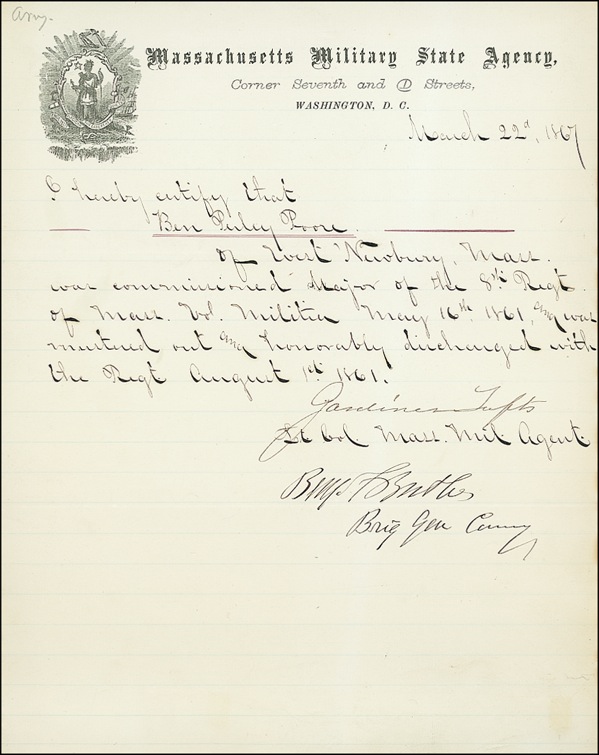 Army.
Massachusetts Military State Agency,
Corner Seventh and D Streets,
WASHINGTON, D. C.
March 22d, 1867
I hereby certify that
Ben Perley Poore
of West Newbury, Mass.
was commissioned Major of the 8th Regt.
of Mass. Vol. Militia May 16th 1861, and was
mustered out and honorably discharged with
the Regt August 1st 1861.
Gardiner Tufts
Lt Col Mass. Mil Agent
Benj F Butler
Brig Gen Comg